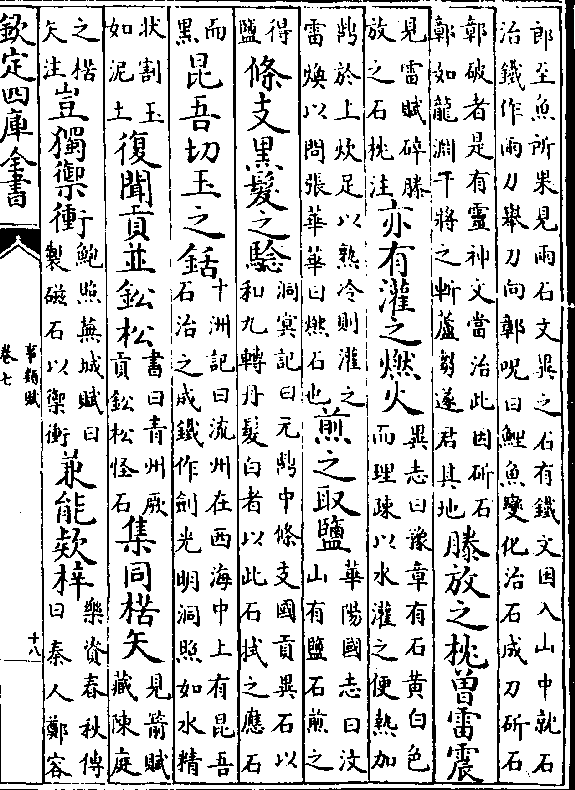 郎至魚所果見兩石文異之石有鐵文因入山中就石
治鐵作兩刀舉刀向鄣呪曰鯉魚變化治石成刀斫石
鄣破者是有靈神文當治此因斫石
鄣如龍淵干將之斬蘆芻遂君其地
滕放之枕曾雷震
見雷賦碎滕
放之石枕注
亦有灌之燃火
異志曰豫章有石黃白色
而理疎以水灌之便熱加
鼎於上炊足以熟冷則灌之
雷煥以問張華華曰燃石也
煎之取鹽
華陽國志曰汶
山有鹽石煎之
得
鹽
條支黑髮之驗
洞冥記曰元鼎中條支國貢異石以
和九轉丹髮白者以此石拭之應石
而
黑
昆吾切玉之銛
十洲記曰流州在西海中上有昆吾
石治之成鐵作劍光明洞照如水精
狀割玉
如泥土
復聞貢並鈆松
書曰青州厥
貢鈆松怪石
集同楛矢
見箭賦
藏陳庭
之楛
矢注
豈獨禦衝
鮑照蕪城賦曰
製磁石以禦衝
兼能欵梓
樂資春秋傳
曰秦人鄭容
欽定四庫全書
事類賦
卷七
十八